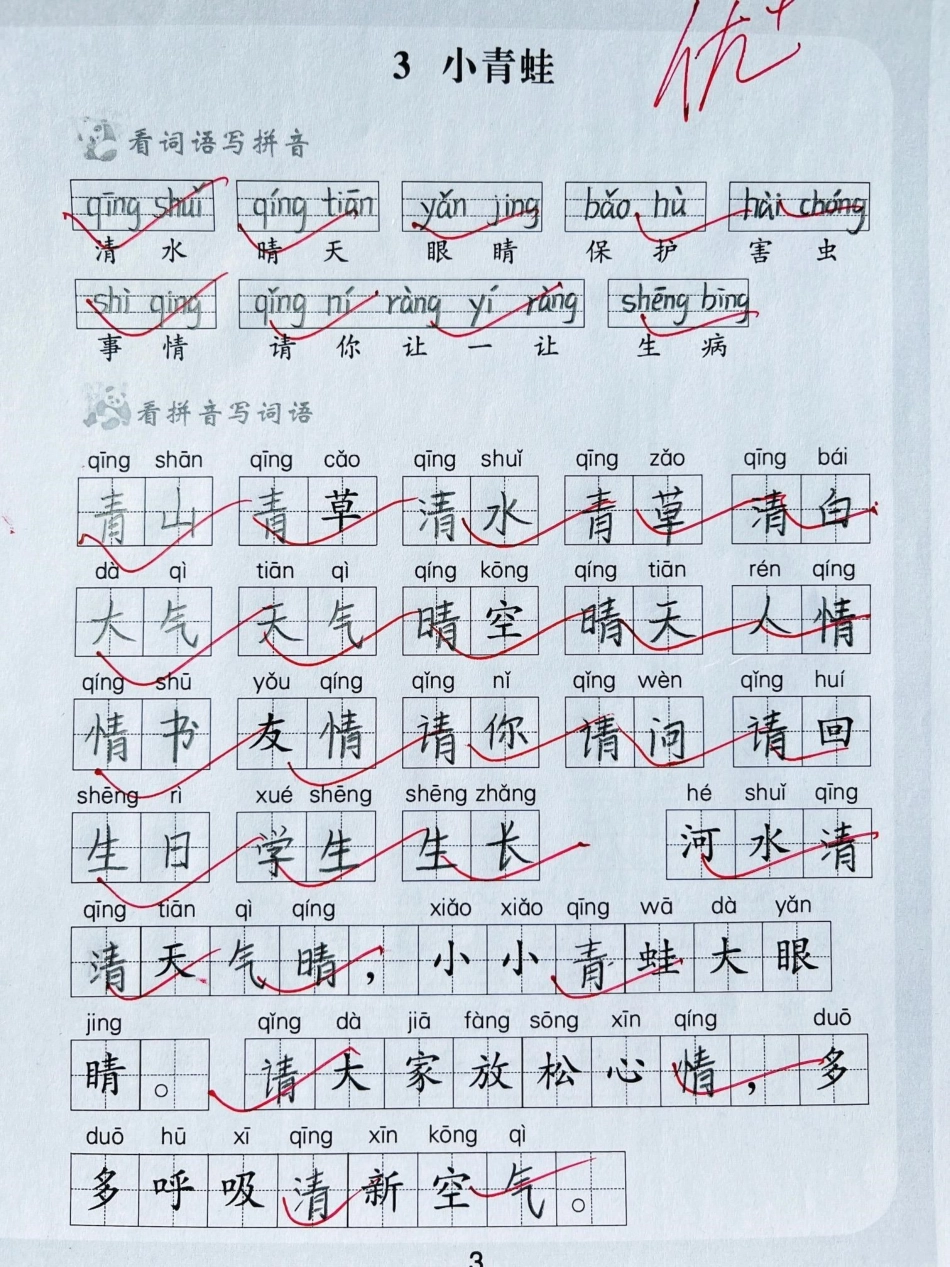 优+
3 小青蛙
看词语写拼音
qīng shuǐ qíng tiān yǎn jing bǎo hù hài chóng
清 水 晴 天 眼 睛 保 护 害 虫
shì qing qǐng ní ràng yí ràng shēng bìng
事 情 请 你 让 一 让 生 病
看拼音写词语
qīng shān qīng cǎo qīng shuǐ qīng zǎo qīng bái
青 山 青 草 清 水 青 草 清 白
dà qì tiān qì qíng kōng qíng tiān rén qíng
大 气 天 气 晴 空 晴 天 人 情
qíng shū yǒu qíng qǐng nǐ qǐng wèn qǐng huí
情 书 友 情 请 你 请 问 请 回
shēng rì xué shēng shēng zhǎng hé shuǐ qīng
生 日 学 生 生 长 河 水 清
qīng tiān qì qíng xiǎo xiǎo qīng wā dà yǎn
清 天 气 晴 , 小 小 青 蛙 大 眼
jing qǐng dà jiā fàng sōng xīn qíng duō
睛 。 请 大 家 放 松 心 情 , 多
duō hū xī qīng xīn kōng qì
多 呼 吸 清 新 空 气 。
3